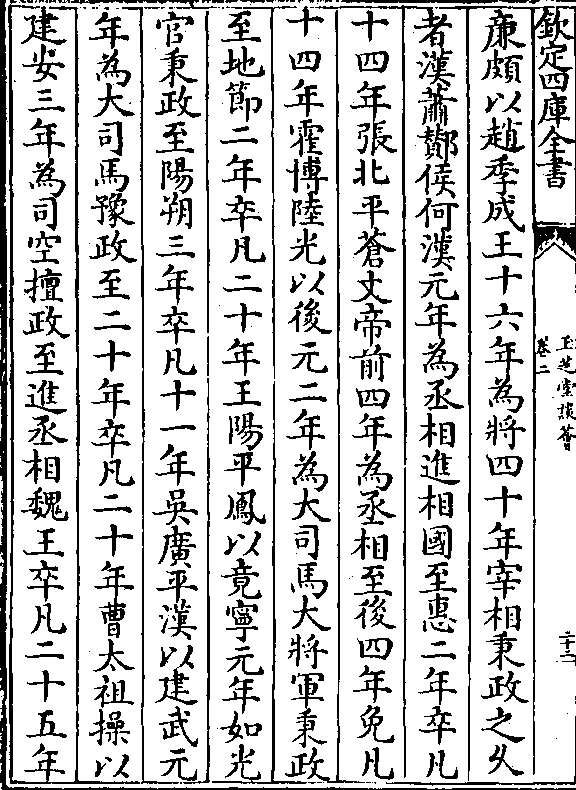 欽定四庫全書
玉芝堂談薈
卷二
二十二
廉頗以趙季成王十六年為將四十年宰相秉政之久
者漢蕭酇侯何漢元年為丞相進相國至惠二年卒凡
十四年張北平蒼文帝前四年為丞相至後四年免凡
十四年霍博陸光以後元二年為大司馬大將軍秉政
至地節二年卒凡二十年王陽平鳳以竟寧元年如光
官秉政至陽朔三年卒凡十一年吳廣平漢以建武元
年為大司馬豫政至二十年卒凡二十年曹太祖操以
建安三年為司空擅政至進丞相魏王卒凡二十五年